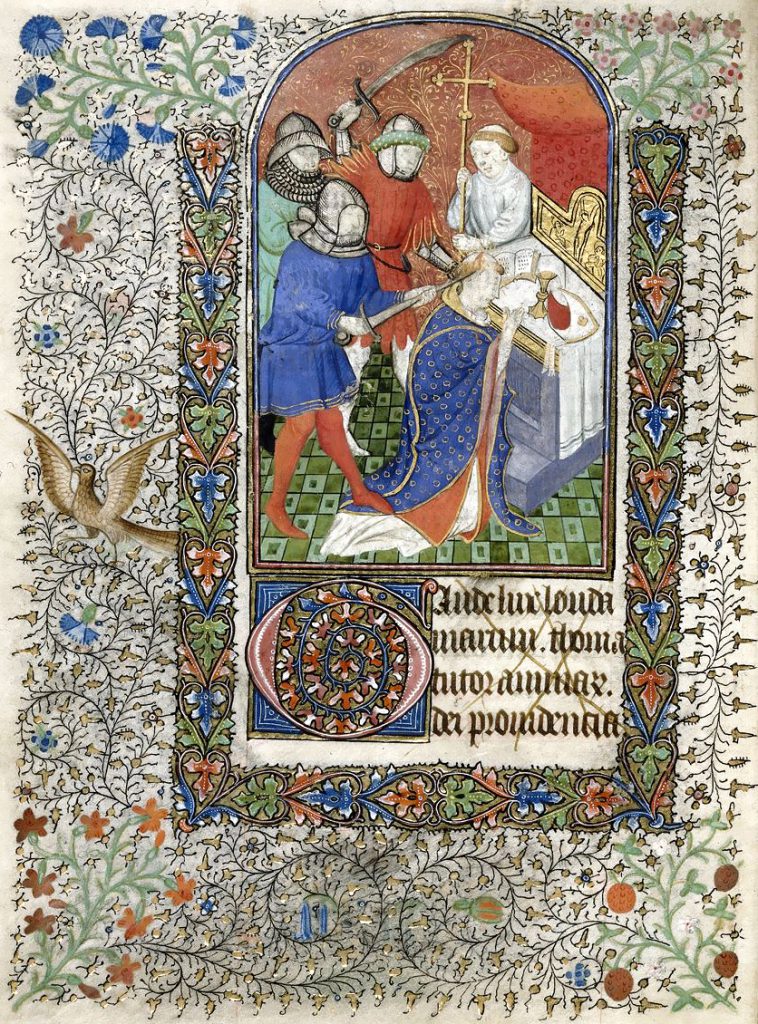 Gaude lux londa
niarum. thoma
tutor animaꝝ.
dei prouidentia